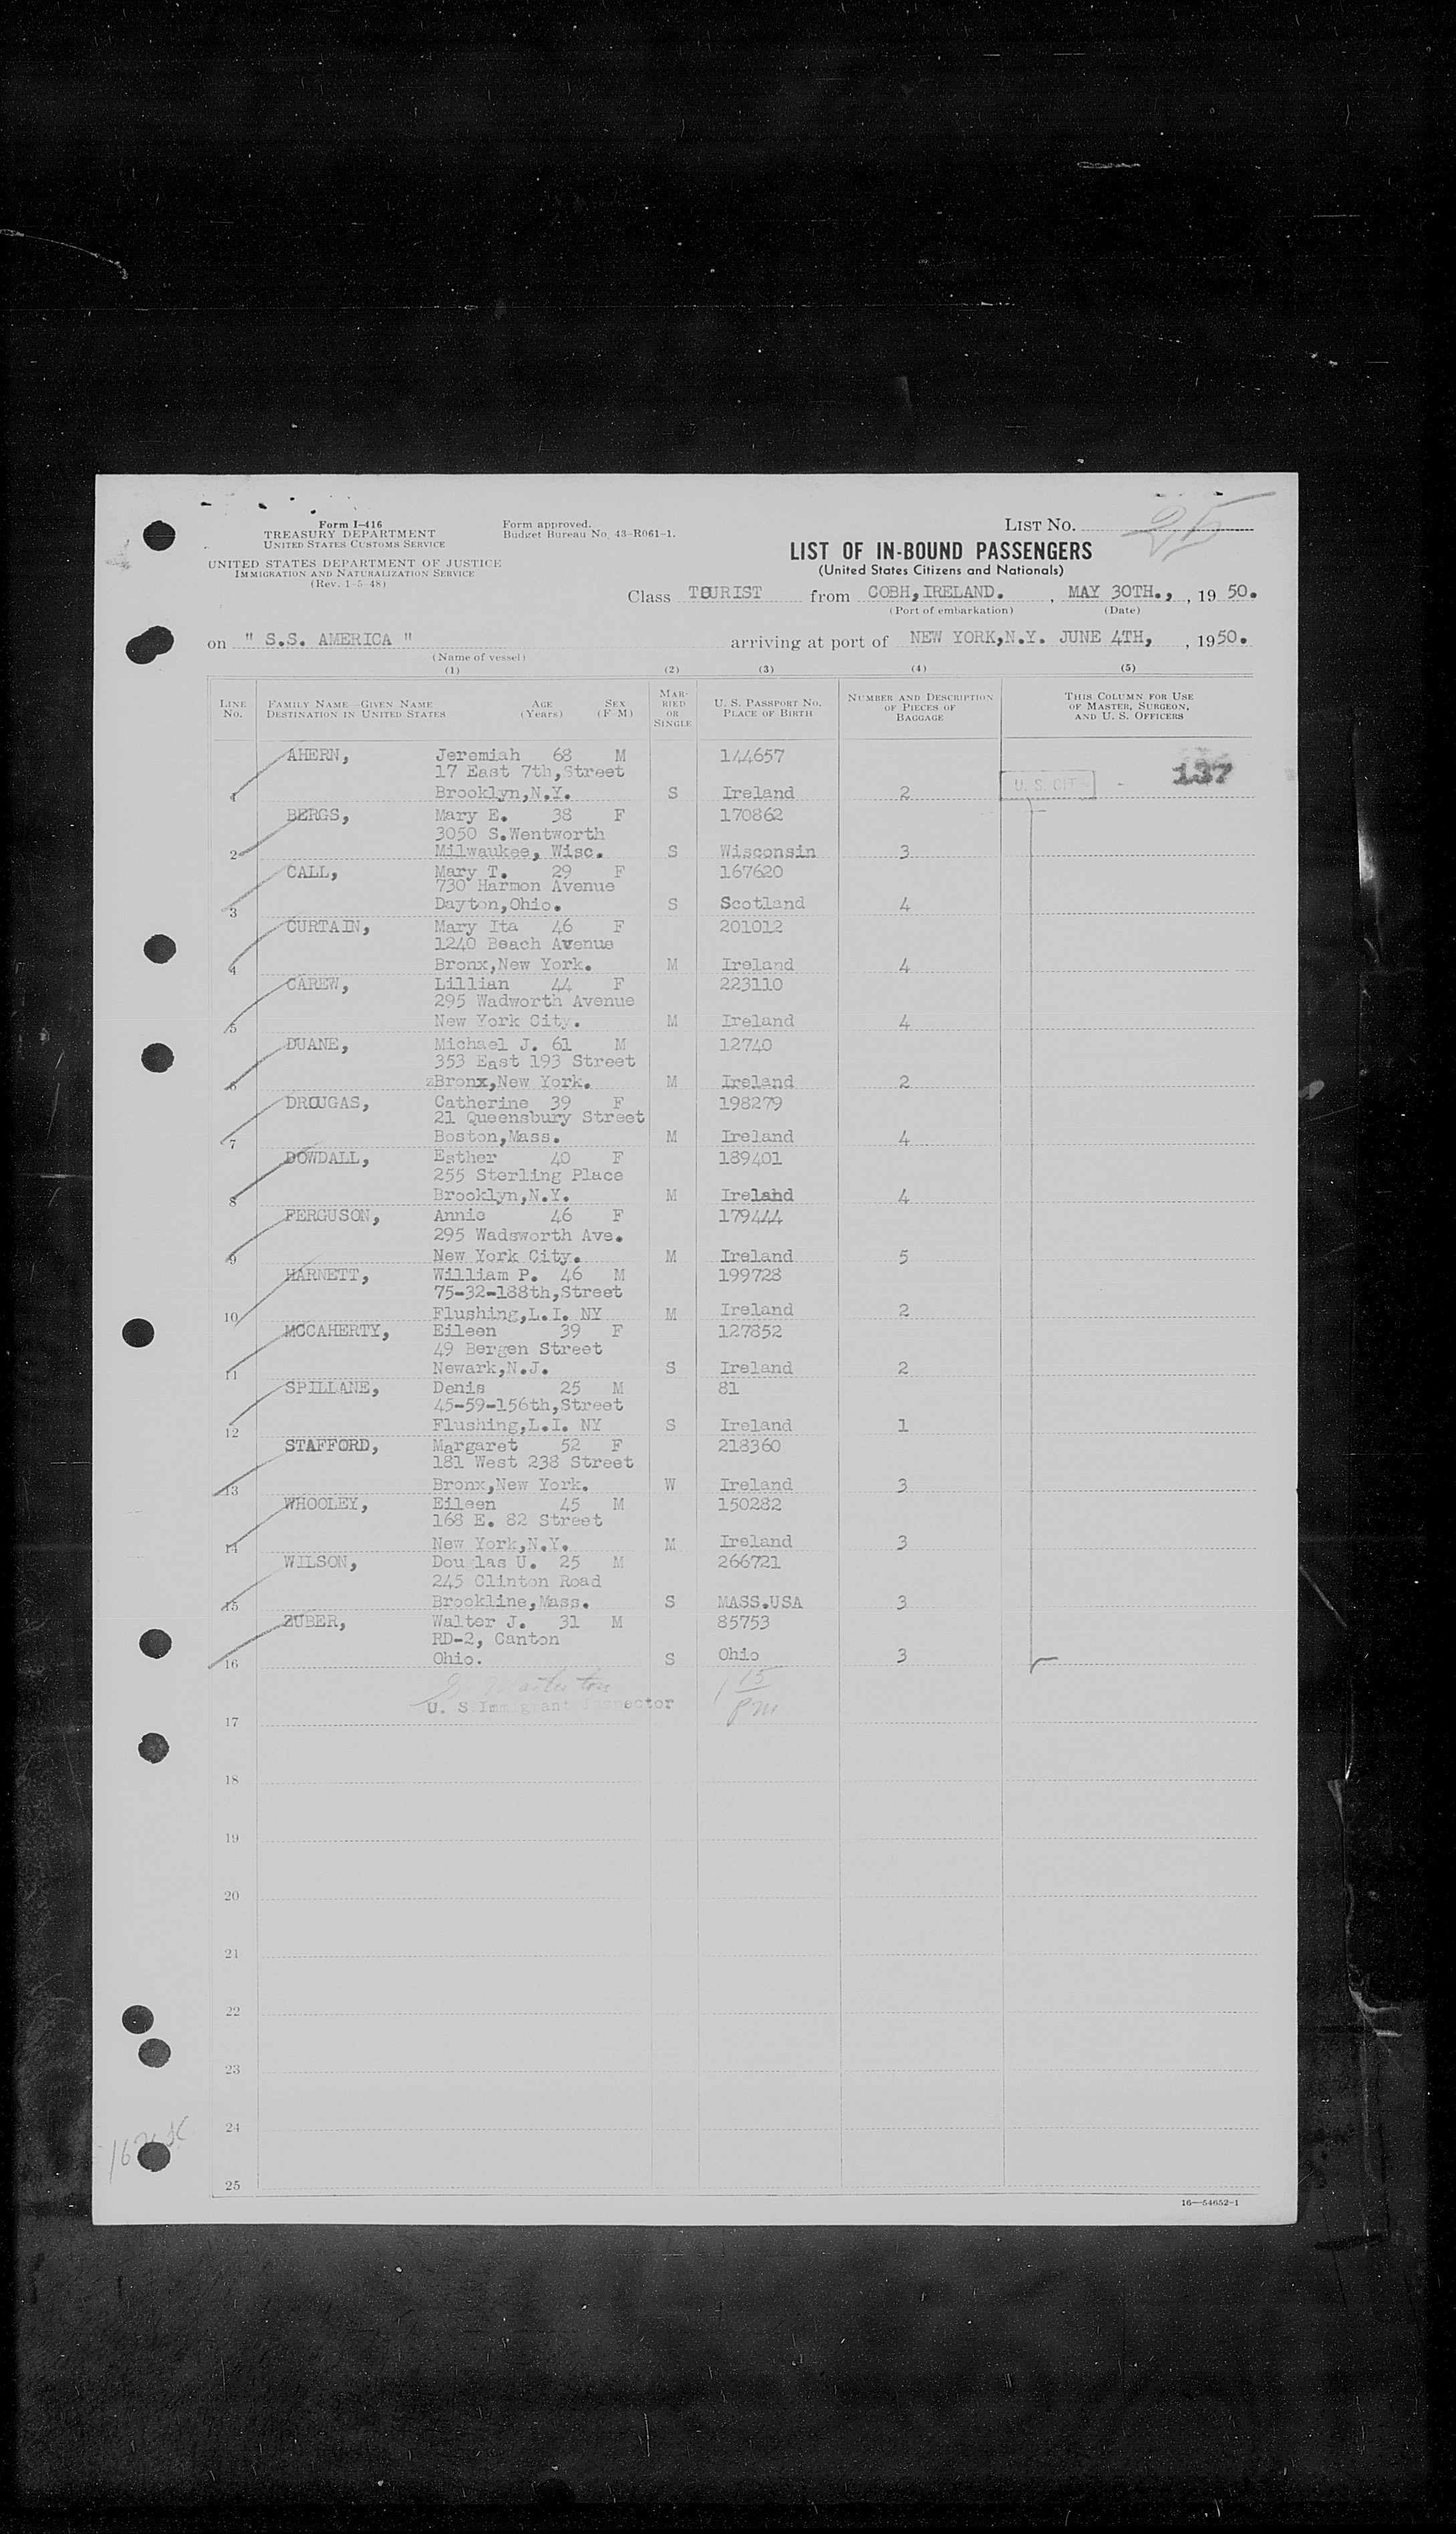 Form I-416
TREASURY DEPARTMENT
UNITED STATES CUSTOMS SERVICE
Form approved.
Budget Bureau No. 43-R061-1.
LIST NO. 25
UNITED STATES DEPARTMENT OF JUSTICE
IMMIGRATION AND NATURALIZATION SERVICE
(Rev. 1-5-48)
LIST OF IN-BOUND PASSENGERS
(United States Citizens and Nationals)
Class TOURIST from COBH, IRELAND. , MAY 30TH., , 19 50.
(Port of embarkation) (Date)
on " S.S. AMERICA " arriving at port of NEW YORK,N.Y. JUNE 4TH, , 1950.
(Name of vessel)
(1) (2) (3) (4) (5)
LINE No. FAMILY NAME—GIVEN NAME DESTINATION IN UNITED STATES AGE (Years) SEX (F M) MARRIED OR SINGLE U. S. PASSPORT NO. PLACE OF BIRTH NUMBER AND DESCRIPTION OF PIECES OF BAGGAGE THIS COLUMN FOR USE OF MASTER, SURGEON, AND U. S. OFFICERS
AHERN, Jeremiah 68 M 144657
17 East 7th,Street U. S. CIT - 137
1 Brooklyn,N.Y. S Ireland 2
BERGS, Mary E. 38 F 170862
3050 S.Wentworth
2 Milwaukee, Wisc. S Wisconsin 3
CALL, Mary T. 29 F 167620
730 Harmon Avenue
3 Dayton,Ohio. S Scotland 4
CURTAIN, Mary Ita 46 F 201012
1240 Beach Avenue
4 Bronx,New York. M Ireland 4
CAREW, Lillian 44 F 223110
295 Wadworth Avenue
5 New York City. M Ireland 4
DUANE, Michael J. 61 M 12740
353 East 193 Street
6 zBronx,New York. M Ireland 2
DROUGAS, Catherine 39 F 198279
21 Queensbury Street
7 Boston,Mass. M Ireland 4
DOWDALL, Esther 40 F 189401
255 Sterling Place
8 Brooklyn,N.Y. M Ireland 4
FERGUSON, Annie 46 F 179444
295 Wadsworth Ave.
9 New York City. M Ireland 5
HARNETT, William P. 46 M 199728
75-32-188th,Street
10 Flushing,L.I. NY M Ireland 2
MCCAHERTY, Eileen 39 F 127852
49 Bergen Street
11 Newark,N.J. S Ireland 2
SPILLANE, Denis 25 M 81
45-59-156th,Street
12 Flushing,L.I. NY S Ireland 1
STAFFORD, Margaret 52 F 218360
181 West 238 Street
13 Bronx,New York. W Ireland 3
WHOOLEY, Eileen 45 M 150282
168 E. 82 Street
14 New York,N.Y. M Ireland 3
WILSON, Douglas U. 25 M 266721
245 Clinton Road
15 Brookline,Mass. S MASS.USA 3
ZUBER, Walter J. 31 M 85753
RD-2, Canton
16 Ohio. S Ohio 3
1 15
U. S Immigrant Inspector pm
17
18
19
20
21
22
23
24
25
16—54652-1